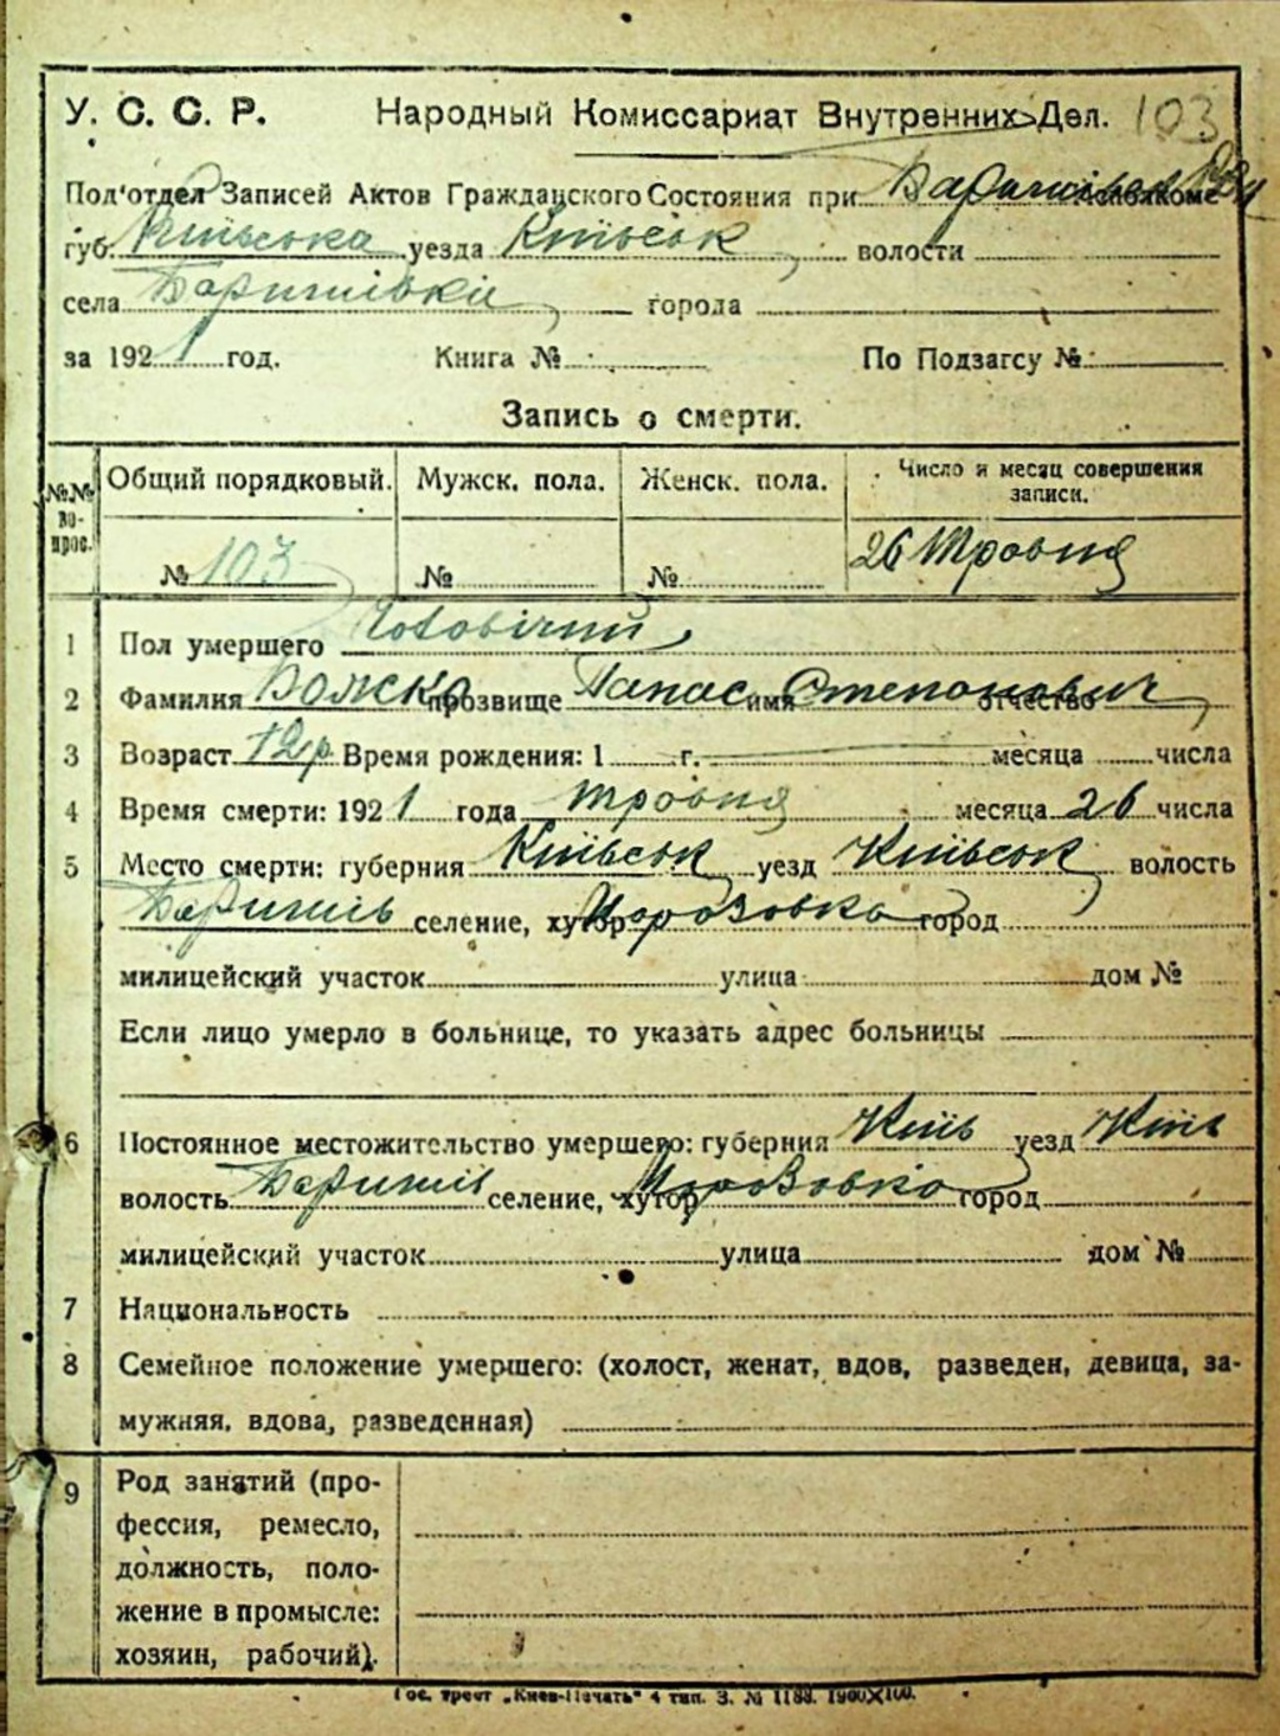 У. С. С. Р. Народный Комиссариат Внутренних Дел. 103
Под'отдел Записей Актов Гражданского Состояния при
губ. Київська уезда Київськ волости
села Баришівки города
за 1921 год. Книга № По Подзагсу №
Запись о смерти.
№№ во-прос. Общий порядковый. Мужск. пола. Женск. пола. Число и месяц совершения записи.
№ 103 № № 26 Травня
1 Пол умершего Чоловічий
2 Фамилия Божко прозвище Панас имя Степанович отчество
3 Возраст 72р Время рождения: 1 г. месяца числа
4 Время смерти: 1921 года травня месяца 26 числа
5 Место смерти: губерния Київськ уезд Київськ волость
Баришів селение, хутор город
милицейский участок улица дом №
Если лицо умерло в больнице, то указать адрес больницы
6 Постоянное местожительство умершего: губерния Київ уезд Київ
волость Баришів селение, хутор город
милицейский участок улица дом №
7 Национальность
8 Семейное положение умершего: (холост, женат, вдов, разведен, девица, за-
мужняя, вдова, разведенная)
9 Род занятий (про-
фессия, ремесло,
должность, поло-
жение в промысле:
хозяин, рабочий).
Гос. трест „Киев-Печать" 4 тип. З. № 1188. 1900Х100.